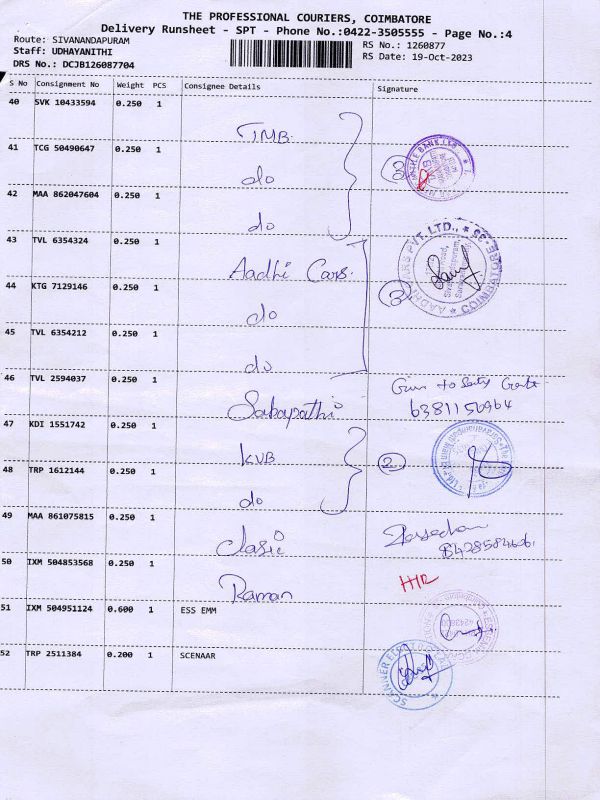 THE PROFESSIONAL COURIERS, COIMBATORE
Delivery Runsheet - SPT - Phone No.:0422-3505555 - Page No.:4
Route: SIVANANDAPURAM
RS No.: 1260877
Staff: UDHAYANITHI
RS Date: 19-Oct-2023
DRS No.: DCJB126087704
S No Consignment No Weight PCS Consignee Details Signature
40 SVK 10433594 0.250 1
TMB
41 TCG 50490647 0.250 1
do
3
42 MAA 862047604 0.250 1
do
43 TVL 6354324 0.250 1
Aadhi Cars
AADHI CARS PVT. LTD., * COIMBATORE-35 *
44 KTG 7129146 0.250 1
do
3
45 TVL 6354212 0.250 1
do
46 TVL 2594037 0.250 1
Sabapathi
to Gate
6381156964
47 KDI 1551742 0.250 1
KVB
2
48 TRP 1612144 0.250 1
do
49 MAA 861075815 0.250 1
Clasic
50 IXM 504853568 0.250 1
Raman
51 IXM 504951124 0.600 1 ESS EMM
52 TRP 2511384 0.200 1 SCENAAR